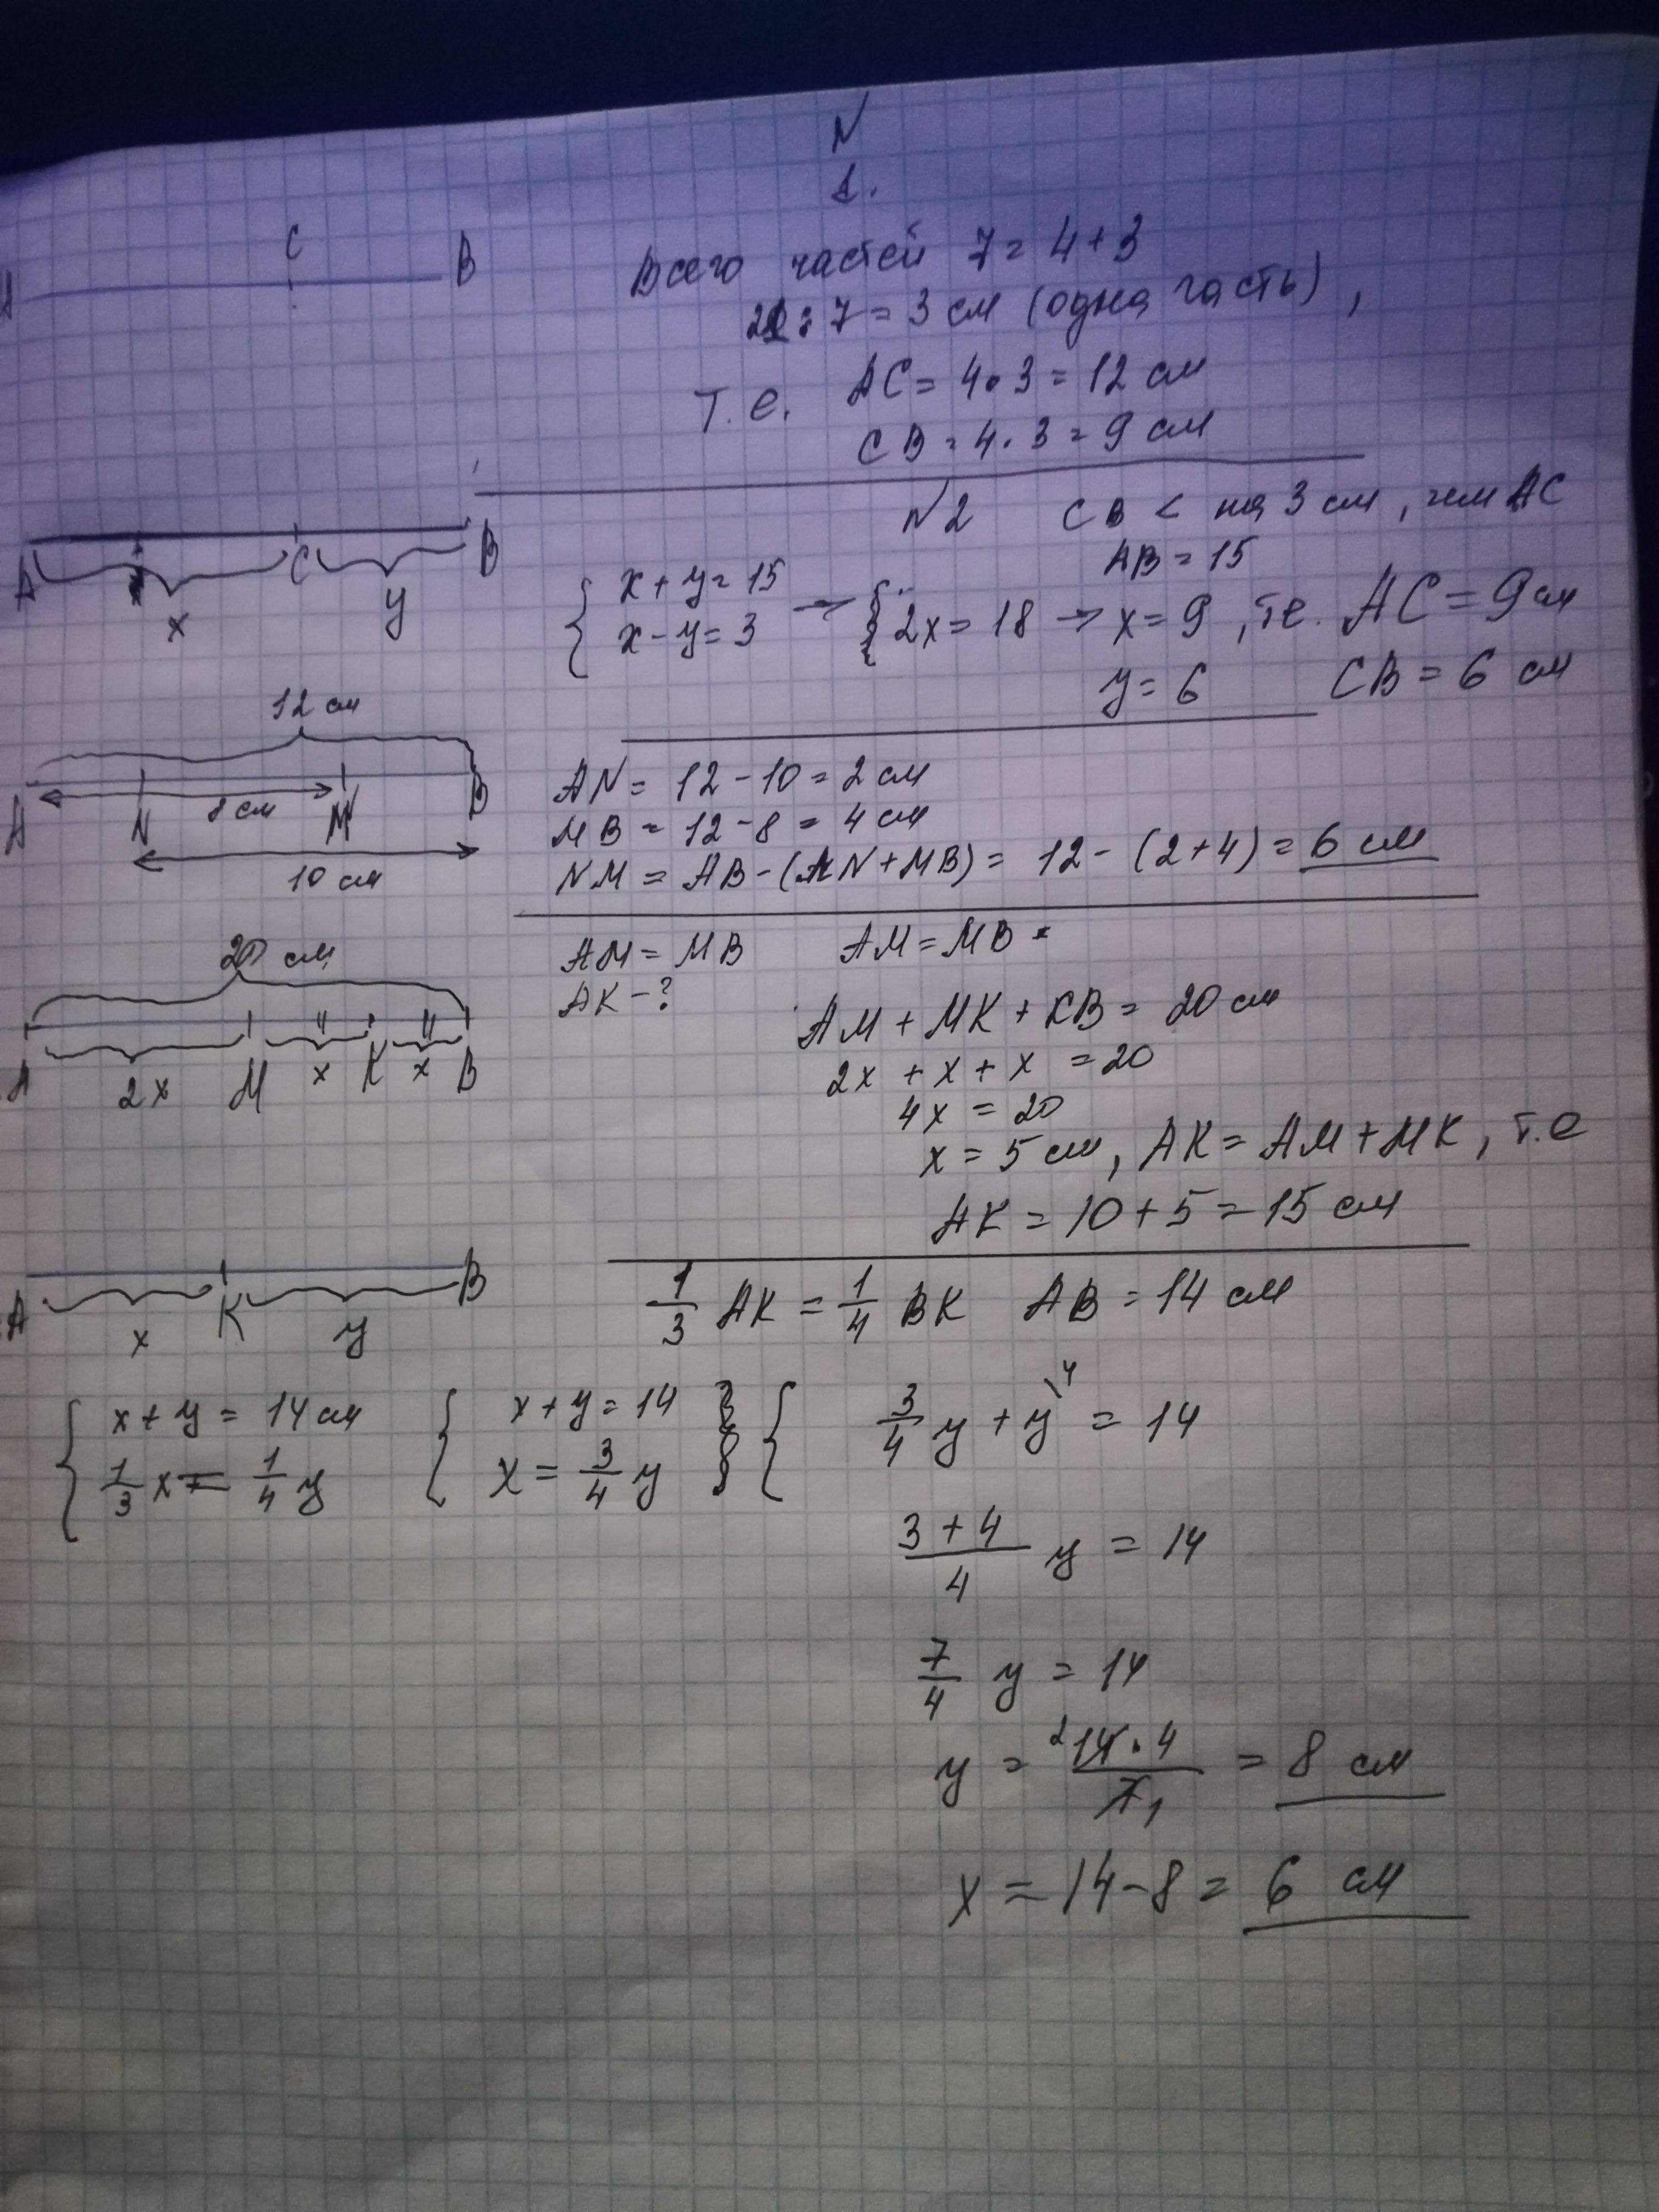 N
1.
A C B
Всего частей 7 = 4 + 3
21 : 7 = 3 см (одна часть),
т.е. AC = 4 · 3 = 12 см
CB = 4 · 3 = 9 см
N2 CB < на 3 см, чем AC
AB = 15
A C B
x y
{ x + y = 15
x - y = 3 → { 2x = 18 → x = 9, т.е. AC = 9 см
y = 6 CB = 6 см
12 см
A N M B
8 см
10 см
AN = 12 - 10 = 2 см
MB = 12 - 8 = 4 см
NM = AB - (AN + MB) = 12 - (2+4) = 6 см
20 см
A M K B
2x x x
AM = MB AM = MB =
AK - ?
AM + MK + KB = 20 см
2x + x + x = 20
4x = 20
x = 5 см, AK = AM + MK, т.е
AK = 10 + 5 = 15 см
A K B
x y
1/3 AK = 1/4 BK AB = 14 см
{ x + y = 14 см
1/3 x = 1/4 y
{ x + y = 14
x = 3/4 y
{ 3/4 y + y \4 = 14
3 + 4/4 y = 14
7/4 y = 14
y = 2 14 · 4/7 1 = 8 см
x = 14 - 8 = 6 см